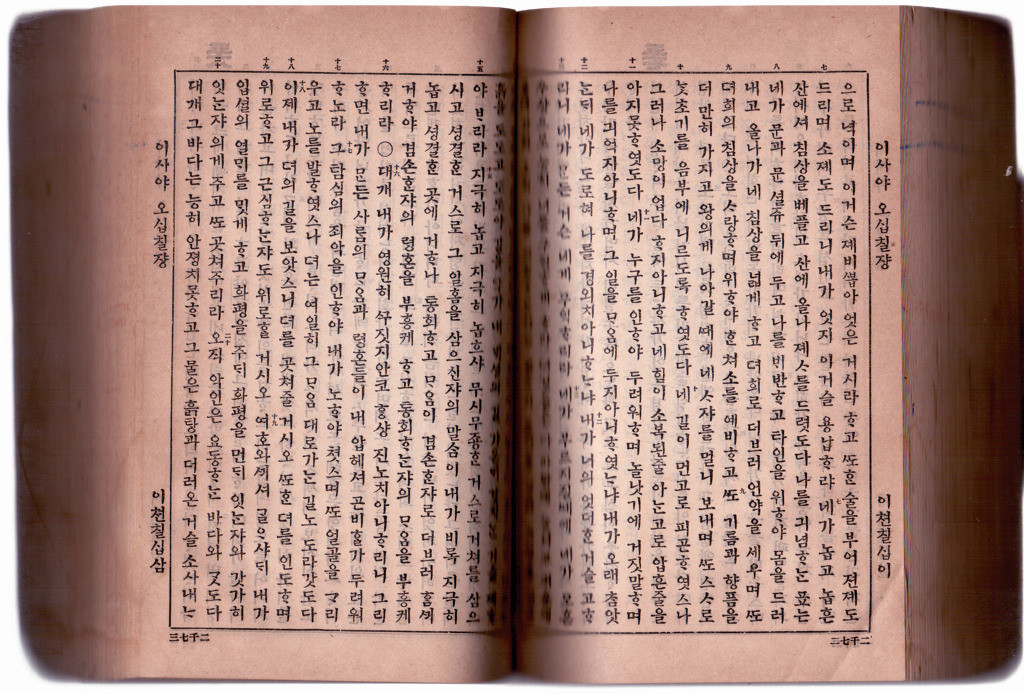 이사야 오십칠쟝
이쳔칠십이
七
으로 녁이며 이거슨 졔비ᄲᅩᆸ아 엇은 거시라 ᄒᆞ고 ᄯᅩᄒᆞᆫ 술을 부어 젼졔도
드리며 소졔도 드리니 내가 엇지 이거슬 용납ᄒᆞ랴 七 네가 놉고 놉흔
산에셔 침상을 베플고 산에 올나 졔ᄉᆞ를 드렷도다 나를 긔념ᄒᆞᄂᆞᆫ 표는
八
네가 문파 문셜쥬 뒤에 두고 나를 ᄇᆡ반ᄒᆞ고 타인을 위ᄒᆞ야 몸을 드러
내고 올나가 네 침상을 넓게 ᄒᆞ고 뎌희로 더브러 언약을 세우며 ᄯᅩ
九
뎌희의 침상을 ᄉᆞ랑ᄒᆞ며 위ᄒᆞ야 ᄒᆞᆫ 쳐소를 예비ᄒᆞ고 九 ᄯᅩ 기름과 향픔을
더 만히 가지고 왕의게 나아갈 ᄯᅢ에 네 ᄉᆞ쟈를 멀니 보내며 ᄯᅩ 스ᄉᆞ로
十
ᄂᆞᆺ초기를 음부에 니르도록 ᄒᆞ엿도다 十 네 길이 먼고로 피곤ᄒᆞ엿스나
그러나 소망이 업다 ᄒᆞ지아니ᄒᆞ고 네 힘이 소복된줄 아는고로 압흔줄을
十一
아지못ᄒᆞ엿도다 十一 네가 누구를 인ᄒᆞ야 두려워ᄒᆞ며 놀낫기에 거짓말ᄒᆞ며
나를 긔억지아니ᄒᆞ며 이 일을 ᄆᆞᄋᆞᆷ에 두지아니ᄒᆞ엿ᄂᆞ냐 내가 오래 ᄎᆞᆷ앗
十二
ᄂᆞᆫᄃᆡ 네가 도로혀 나를 경외치아니ᄒᆞᄂᆞ냐 十二 내가 너의 엇더ᄒᆞᆫ 거슬 고ᄒᆞ
二千七二
十五
야 ᄇᆞ리라 十五 지극히 놉고 지극히 놉ᄒᆞ샤 무시무죵ᄒᆞᆫ 거스로 거쳐를 삼으
시고 셩결ᄒᆞᆫ 거스로 그 일홈을 삼으신쟈의 말ᄉᆞᆷ이 내가 비록 지극히
놉고 셩결ᄒᆞᆫ 곳에 거ᄒᆞ나 통회ᄒᆞ고 ᄆᆞᄋᆞᆷ이 겸손ᄒᆞᆫ쟈로 더브러 ᄒᆞᆷᄭᅴ
거ᄒᆞ야 겸손ᄒᆞᆫ쟈의 령혼을 부흥케 ᄒᆞ고 통회ᄒᆞᄂᆞᆫ쟈의 ᄆᆞᄋᆞᆷ을 부흥케
十六
ᄒᆞ리라 ○ 十六 대개 내가 영원히 ᄭᅮ짓지안코 ᄒᆞᆼ상 진노치아니ᄒᆞ리니 그리
ᄒᆞ면 내가 ᄆᆞᆫ든 사ᄅᆞᆷ의 ᄆᆞᄋᆞᆷ과 령혼들이 내 압헤셔 곤비ᄒᆞᆯ가 두려워
十七
ᄒᆞ노라 十七 그 탐심의 죄악을 인ᄒᆞ야 내가 노ᄒᆞ야 쳣스며 ᄯᅩ 얼골을 ᄀᆞ리
우고 노를 발ᄒᆞ엿스나 뎌는 여일히 그 ᄆᆞᄋᆞᆷ 대로가는 길노 도라갓도다
十八
十八 이졔 내가 뎌의 길을 보앗스니 뎌를 곳쳐줄 거시오 ᄯᅩᄒᆞᆫ 뎌를 인도ᄒᆞ며
十九
위로ᄒᆞ고 그 근심ᄒᆞᄂᆞᆫ쟈도 위로ᄒᆞᆯ 거시오 十九 여호와ᄭᅴ셔 ᄀᆞᆯᄋᆞ샤ᄃᆡ 내가
입셜의 열ᄆᆡ를 ᄆᆡᆺ게 ᄒᆞ고 화평을 주ᄃᆡ 화평을 먼ᄃᆡ 잇ᄂᆞᆫ쟈와 갓가히
二十
잇ᄂᆞᆫ쟈의게 주고 ᄯᅩ 곳쳐주리라 二十 오직 악인은 요동ᄒᆞᄂᆞᆫ 바다와 ᄀᆞᆺ도다
대개 그 바다는 능히 안졍치 못ᄒᆞ고 그 물은 흙탕과 더러온 거슬 소사내ᄂᆞ
이사야 오십칠쟝
이쳔칠십삼
二千七三